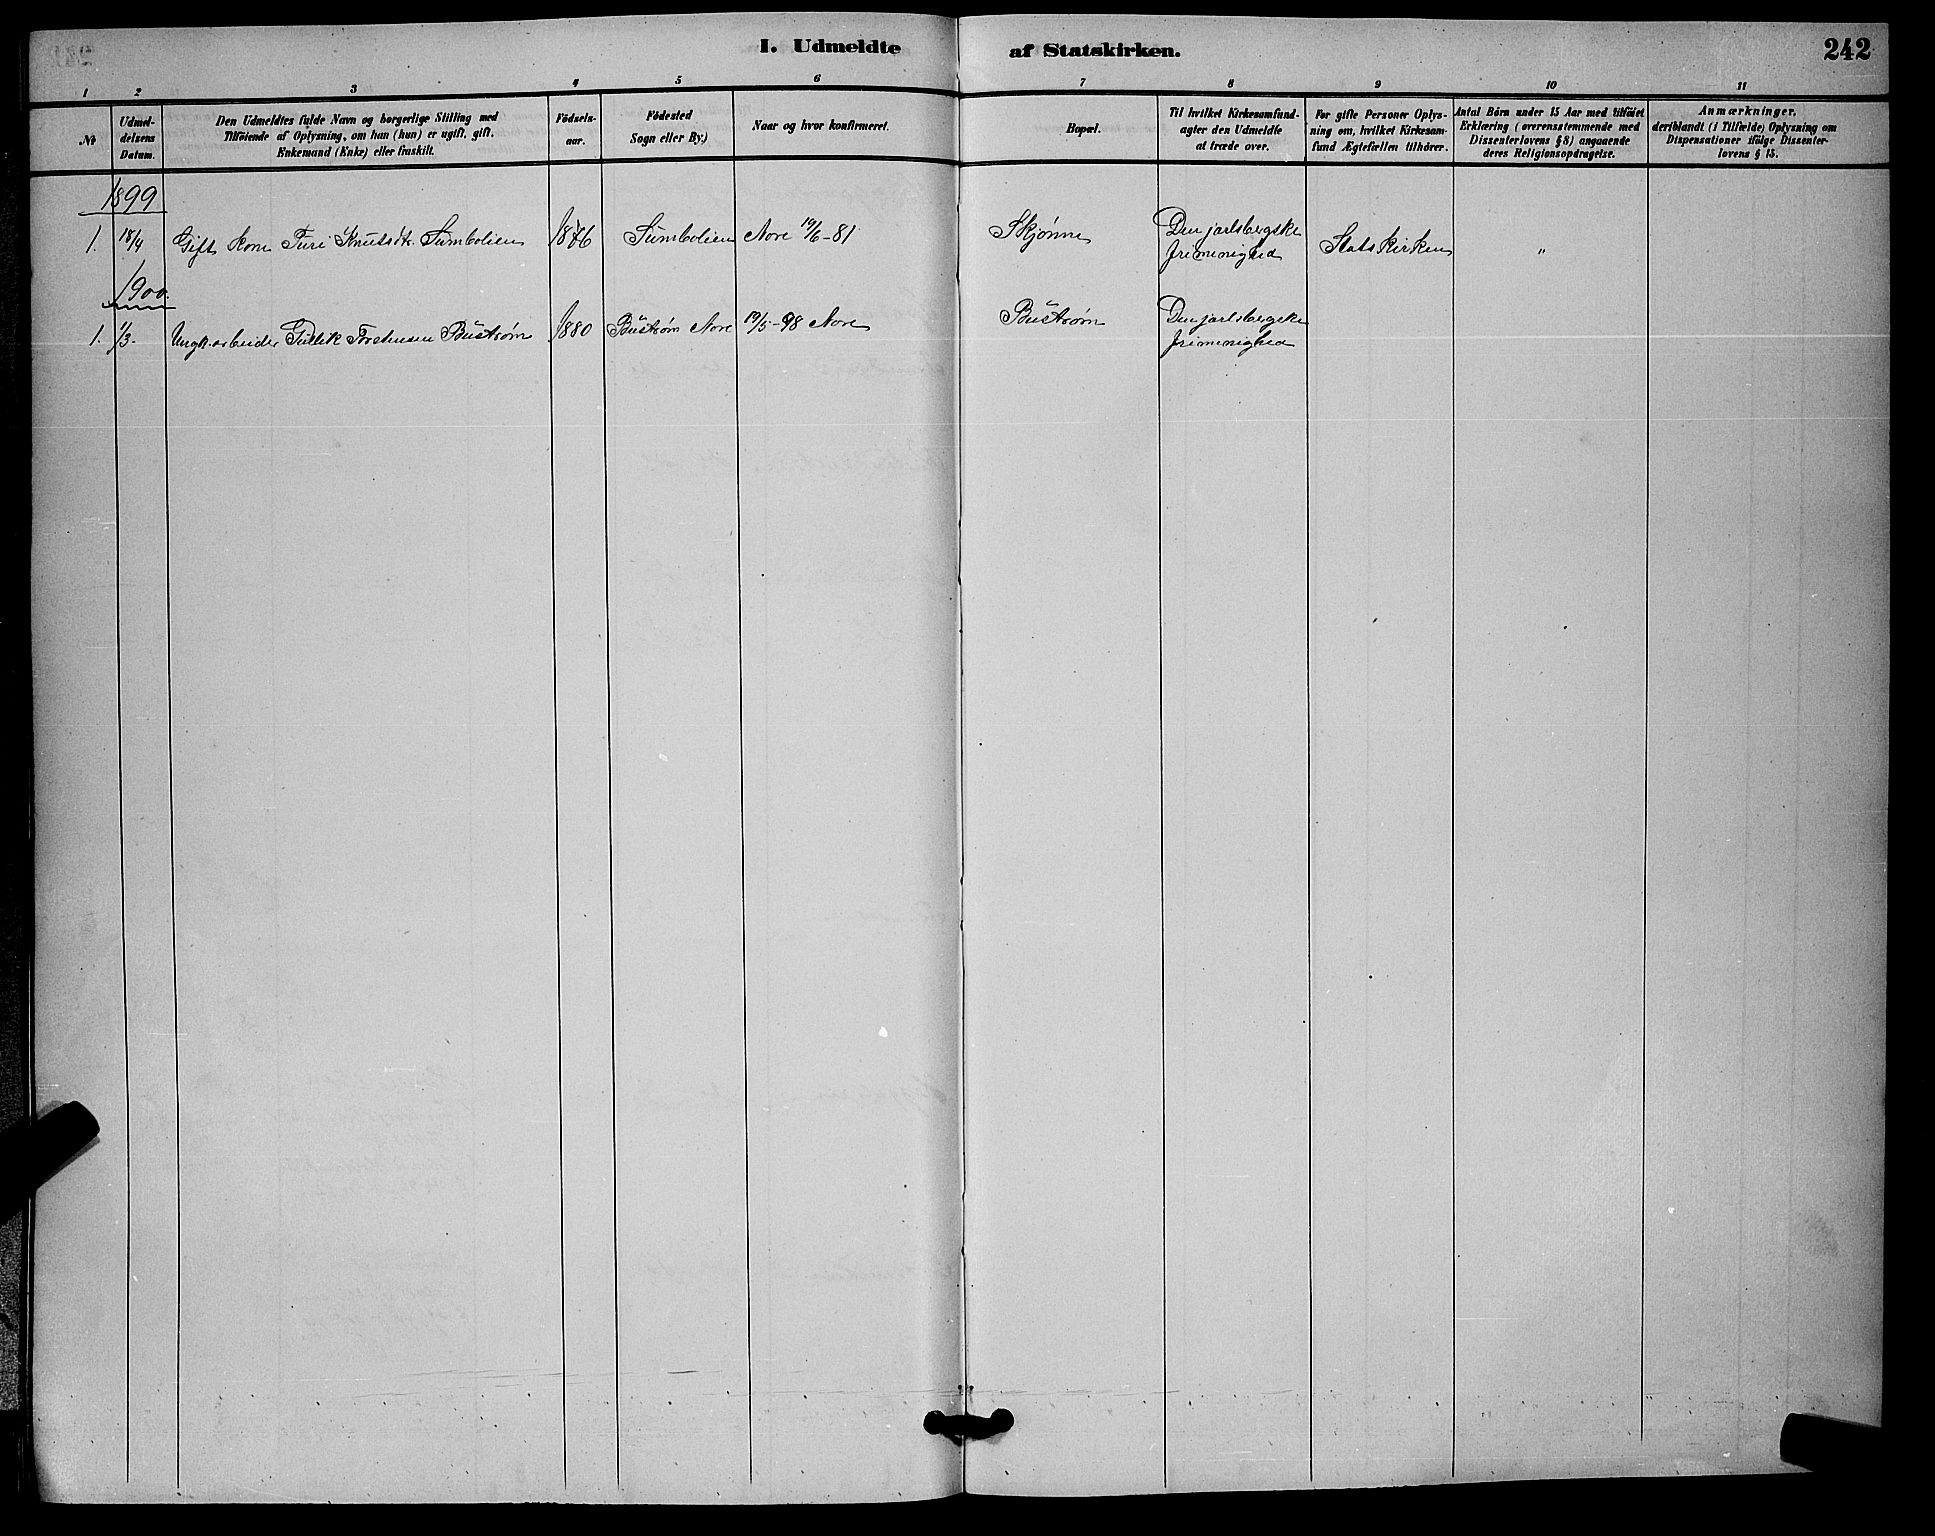 I. Udmeldte af Statskirken. 242
1 2 3 4 5 6 7 8 9 10 11
№
Udmel-
delsens
Datum.
Den Udmeldtes fulde Navn og borgerlige Stilling med
Tilföiende af Oplysning, om han (hun) er ugift, gift.
Enkemand (Enke) eller fraskilt.
Födsels-
aar.
Födested
Sogn eller By.)
Naar og hvor konfirmeret.
Bopæl.
Til hvilket Kirkesamfund-
agter den Udmeldte
at træde over.
For gifte Personer Oplys-
ning om, hvilket Kirkesam-
fund Ægtefællen tilhörer.
Antal Börn under 15 Aar med tilföiet
Erklæring (overensstemmende med
Dissenterlovens § 8) angaaende
deres Religionsopdragelse.
Anmærkninger,
deriblandt (i Tilfælde) Oplysning om
Dispensationer ifölge Dissenter-
lovens § 15.
1899
1. 18/4 Gift kone Turi Knutsdt. Sumbolien 1866 Sumbolien Nore 19/6-81 Skjønne Den jarlsbergske Statskirken "
frimenighed
1900.
1. 1/3. Ungk. arbeider Gullik Torstensen Bustrøm 1880 Bustrøm Nore 19/5-98 Nore Bustrøm Den jarlsbergske
frimenighed